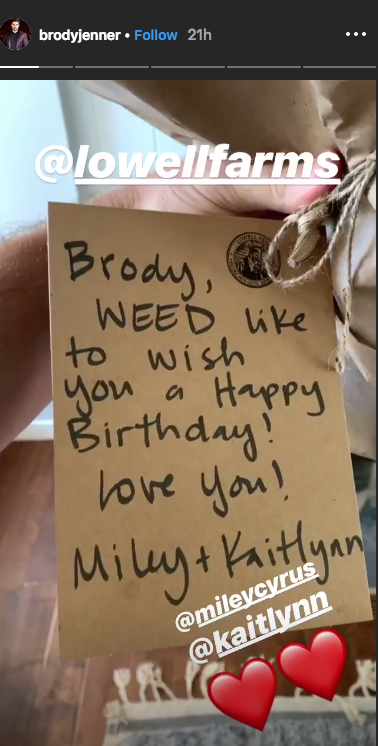 brodyjenner • Follow 21h
@lowellfarms
Brody,
WEED like
to wish
you a Happy
Birthday!
Love You!
Miley + Kaitlynn
@mileycyrus
@kaitlynn